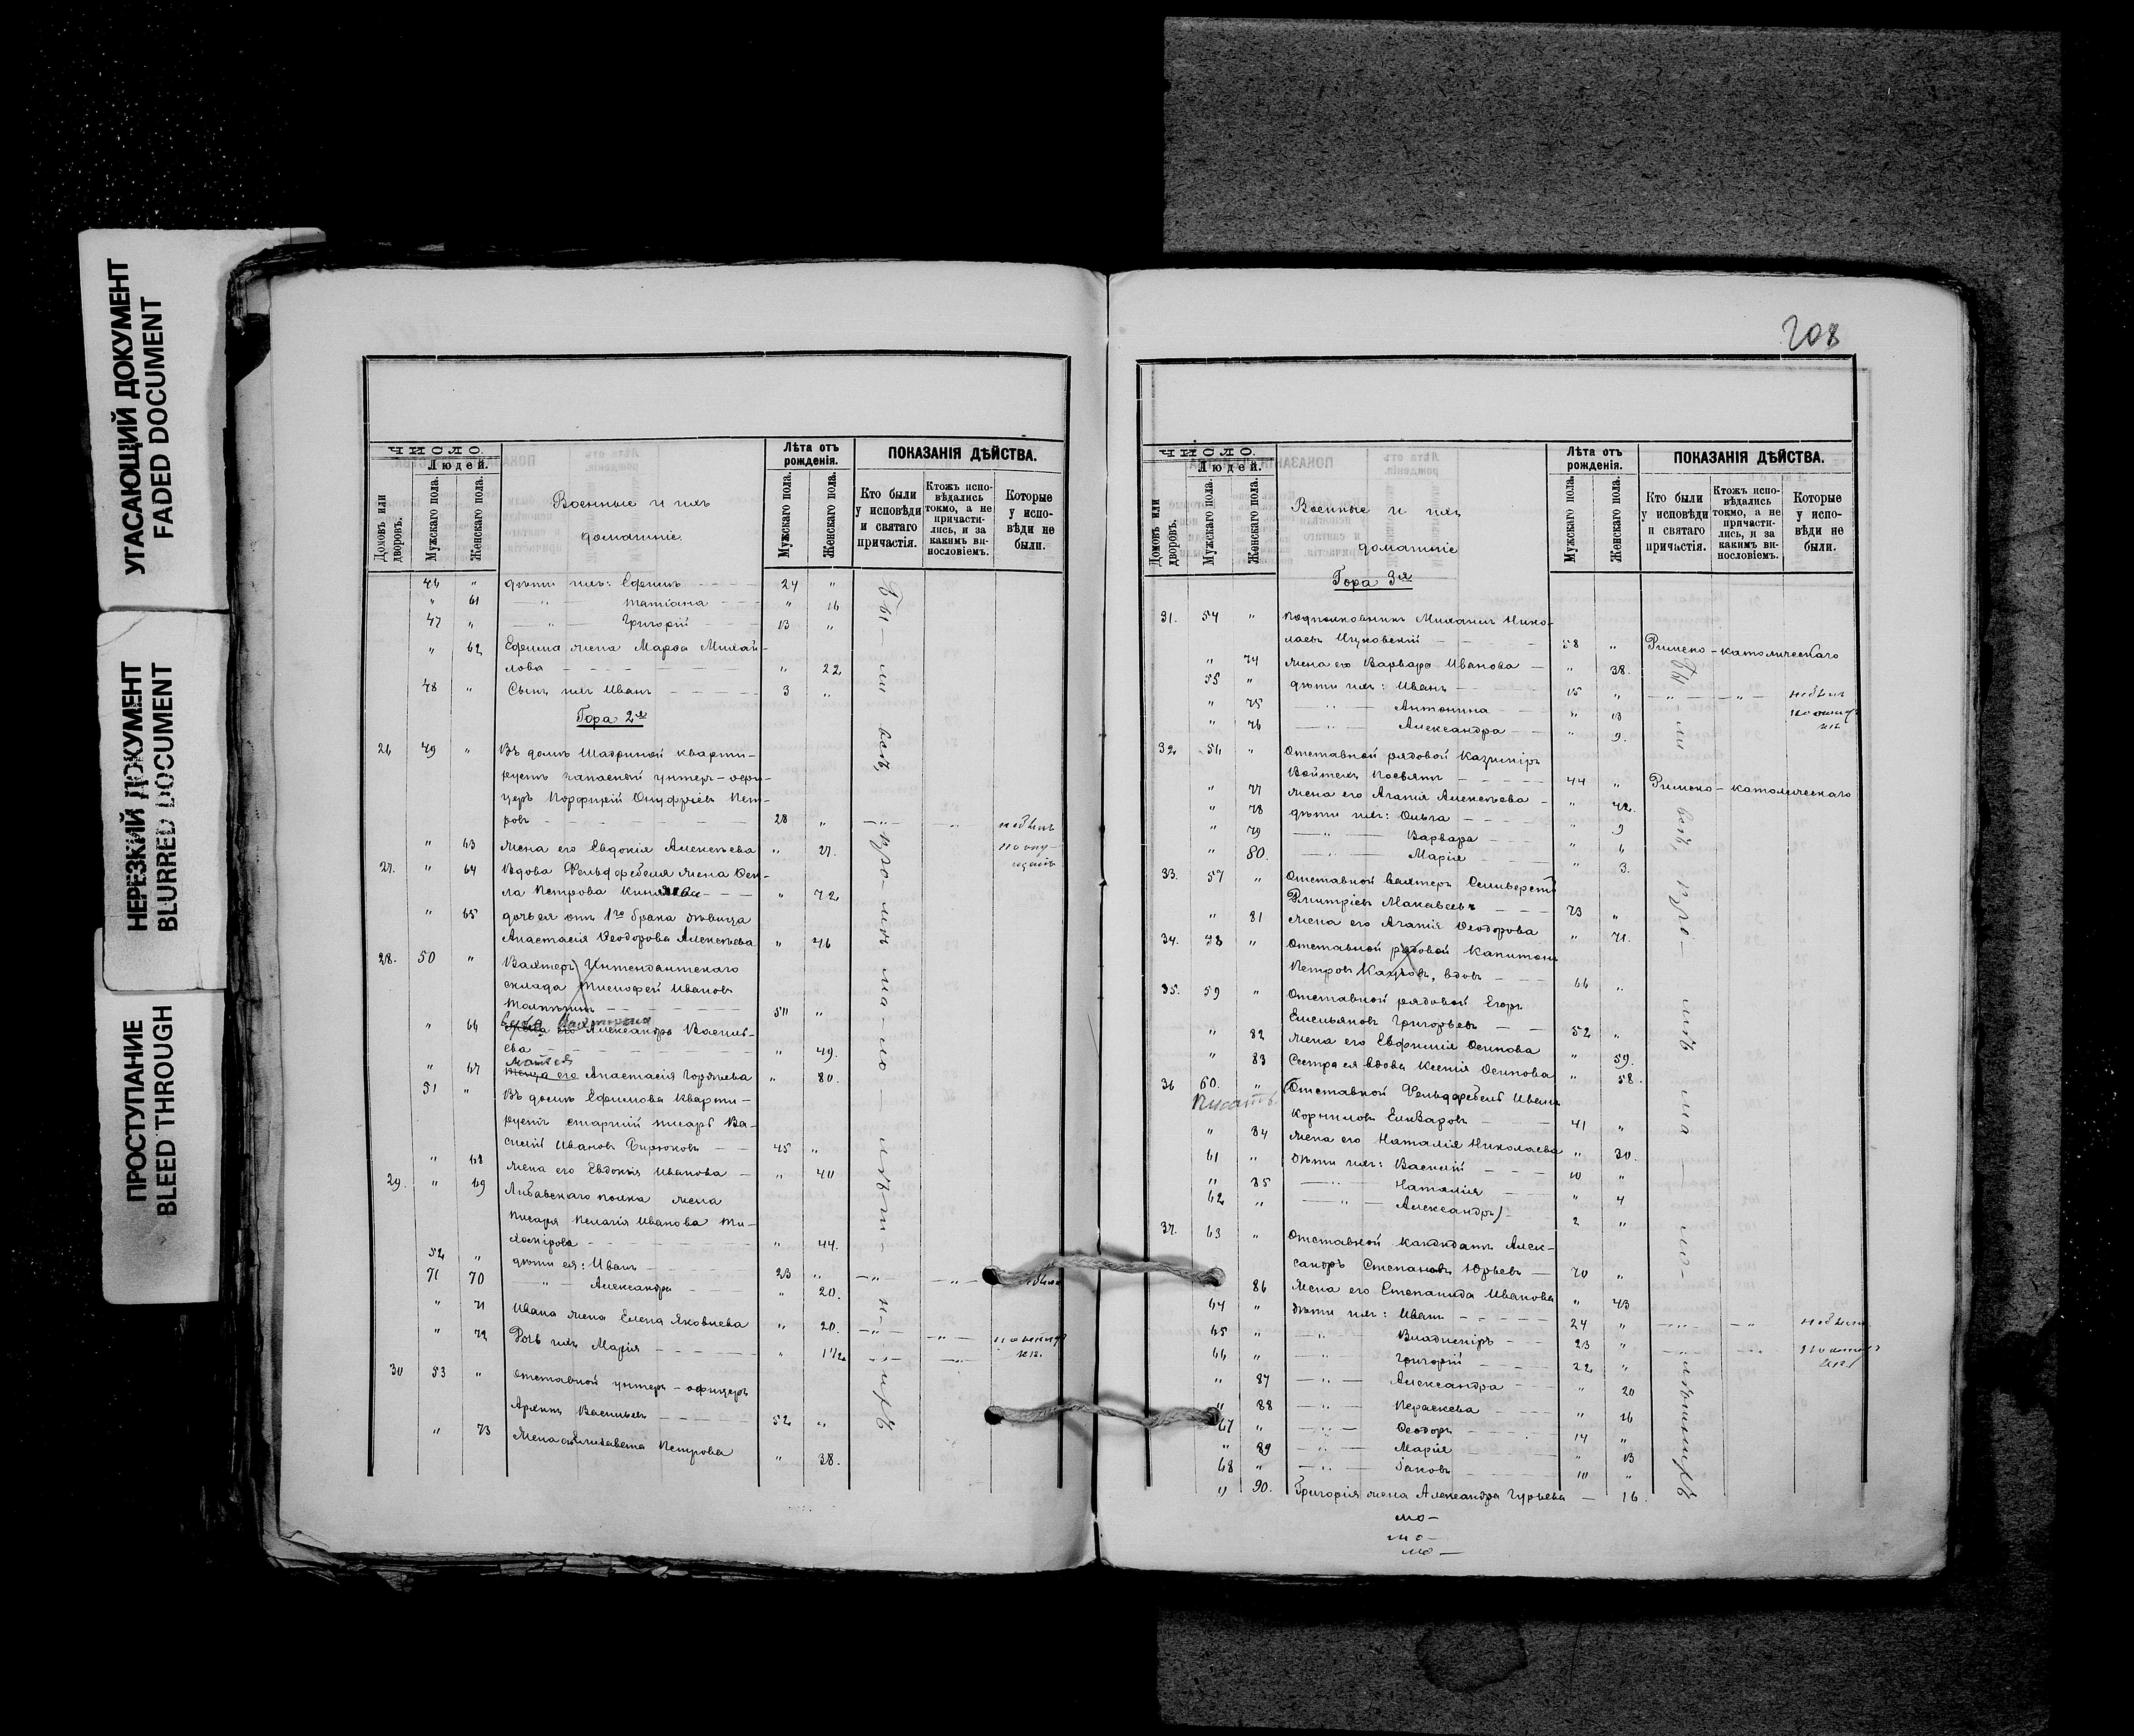 УГАСАЮЩИЙ ДОКУМЕНТ
FADED DOCUMENT
НЕРЕЗКИЙ ДОКУМЕНТ
BLURRED DOCUMENT
ПРОСТУПАНИЕ
BLEED THROUGH
ЧИСЛО.
Людей.
Домовъ или дворовъ.
Мужскаго пола.
Женскаго пола.
Военные и ихъ
домашніе.
Лѣта отъ рожденія.
Мужскаго пола.
Женскаго пола.
ПОКАЗАНІЯ ДѢЙСТВА.
Кто были у исповѣди и святаго причастія.
Ктожъ испо-вѣдались токмо, а не причасти-лись, и за какимъ ви-нословіемъ.
Которые у испо-вѣди не были.
46 " дѣти ихъ: Ефимъ 24 "
" 61 — " — Татіана " 16
47 " — " — Григорій 13 "
" 62 Ефима жена Марѳа Михай-
лова " 22
48 " Сынъ ихъ Иванъ 3 "
Гора 2я
26 49 " Въ домѣ Шадриной кварти-
руетъ запасный унтеръ-офи-
церъ Порфирій Онуфріевъ Пет-
ровъ 28 " не былъ
" 63 жена его Евдокія Алексѣева " 27. по опу-
щенію
27. " 64 Вдова Фельдфебеля жена Ѳек-
ла Петрова " 72
" 65 дочь ея отъ 1го брака дѣвица
Анастасія Ѳеодорова Алексѣева " 46
28. 50 " Вахтеръ Интендантскаго
склада Тимофей Ивановъ
" 66 вдова Вахтера Александра Василь-
ева " 49.
мать ея
" 67 теща его Анастасія " 80.
51 " Въ домѣ Ефимова кварти-
руетъ старшій писарь Ва-
силій Ивановъ Бирюковъ 45 "
" 68 жена его Евдокія Иванова " 40
29. " 69 Либавскаго полка жена
писаря Пелагія Иванова
" 44.
52 " дѣти ея: Иванъ 23 "
71 70 " Александра " 20.
" 71 Ивана жена Елена Яковлева " 20.
" 72 Дочь ихъ Марія " 1 1/2
30 53 " Отставной унтеръ-офицеръ
Васильевъ 52 "
" 73 Жена его Елизавета Петрова " 38.
208
ЧИСЛО.
Людей.
Домовъ или дворовъ.
Мужскаго пола.
Женскаго пола.
Военные и ихъ
домашніе
Лѣта отъ рожденія.
Мужскаго пола.
Женскаго пола.
ПОКАЗАНІЯ ДѢЙСТВА.
Кто были у исповѣди и святаго причастія.
Ктожъ испо-вѣдались токмо, а не причасти-лись, и за какимъ ви-нословіемъ.
Которые у испо-вѣди не были.
Гора 3я
31. 54 " Подполковникъ Михаилъ Нико-
лаевъ 58 " Римско-католическаго
" 74 жена его Варвара Иванова " 38.
55 " дѣти ихъ: Иванъ 15 " не былъ
" 75 — " — Антонина " 13
" 76 — " — Александра " 9.
32 56 " Отставной рядовой Казимиръ
44 " Римско-католическаго
" 77 жена его Агапія Алексѣева " 42.
" 78 дѣти ихъ: Ольга " 9
" 79 — " — Варвара " 6
" 80. — " — Марія " 3.
33. 57 " Отставной вахтеръ Селиверстъ
Дмитріевъ Макавеевъ 73 "
" 81 жена его Агапія Ѳеодорова " 71.
34. 58 " Отставной рядовой Капитонъ
Петровъ вдовъ 66 "
35. 59 " Отставной рядовой Егоръ
Емельяновъ Григорьевъ 52 "
" 82 жена его Евфимія Осипова " 59.
" 83 Сестра ея вдова Ксенія Осипова " 58.
36 60. " Отставной Фельдфебель Иванъ
Писать
Корниловъ Елизаровъ 41 "
" 84 жена его Наталія Николаева " 30.
61 " дѣти ихъ: Василій 10 "
" 85 — " — Наталія " 4
62 " — " — Александръ 2 "
37. 63 " Отставной кандидатъ Алек-
сандръ Степановъ Юрьевъ 70 "
" 86 Жена его Степанида Иванова " 43
64 " дѣти ихъ: Иванъ 24 " не былъ
65 " — " — Владимиръ 23 "
66 " — " — Григорій 22 "
" 87 — " — Александра " 20
" 88 — " — Параскева " 16
67 " — " — Ѳеодоръ 14 "
" 89 — " — Марія " 13
68 " — " — Іаковъ 10 "
" 90. Григорія жена Александра Гурьева — 16.